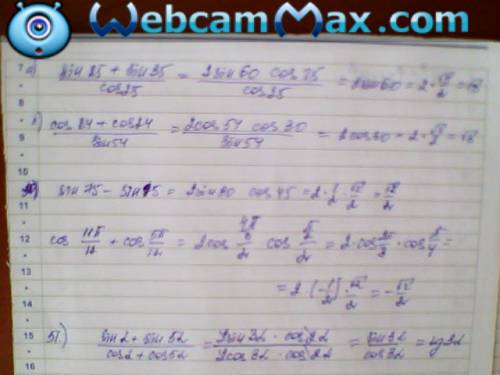 WebcamMax.com
7 а) (sin 85 + sin 35)/cos 25 = (2 sin 60 cos 25)/cos 25 = 2 sin 60 = 2 · √3/2 = √3
8
(cos 84 + cos 24)/sin 54 = (2 cos 54 cos 30)/sin 54 = 2 cos 30 = 2 · √3/2 = √3
9
10
sin 75 - sin 15 = 2 sin 30 cos 45 = 2 · 1/2 · √2/2 = √2/2
11
12 cos 11π/12 + cos 5π/12 = 2 cos cos = 2 · cos 2π/3 · cos π/4 =
13
= 2 · (-1/2) · √2/2 = -√2/2
14
15 51.) (sin 2 + sin 62)/(cos 2 + cos 62) = (2 sin 32 · cos)/(2 cos 32 · cos) = sin 32/cos 32 =
16